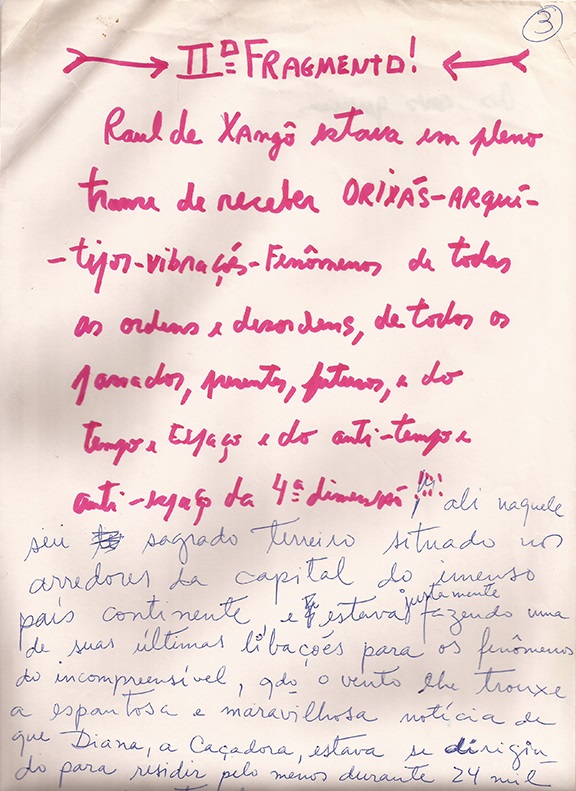 3
IIº FRAGMENTO!
Raul de XANgô estava em pleno
transe de receber ORIXÁS-ARQUÉ-
-tipos-vibraçõs-Fenômenos de todas
as ordens e desordens, de todos os
passados, presentes, futuros, e do
tempo e Espaço e do anti-tempo e
anti-espaço da 4ª dimensão!!!! ali naquele
seu sagrado terreiro situado nos
arredores da capital do imenso
país continente, e estava justamente fazendo uma
de suas últimas libações para os fenômenos
do incompreensível, qdo o vento lhe trouxe
a espantosa e maravilhosa notícia de
que Diana, a Caçadora, estava se dirigin-
do para residir pelo menos durante 24 mil